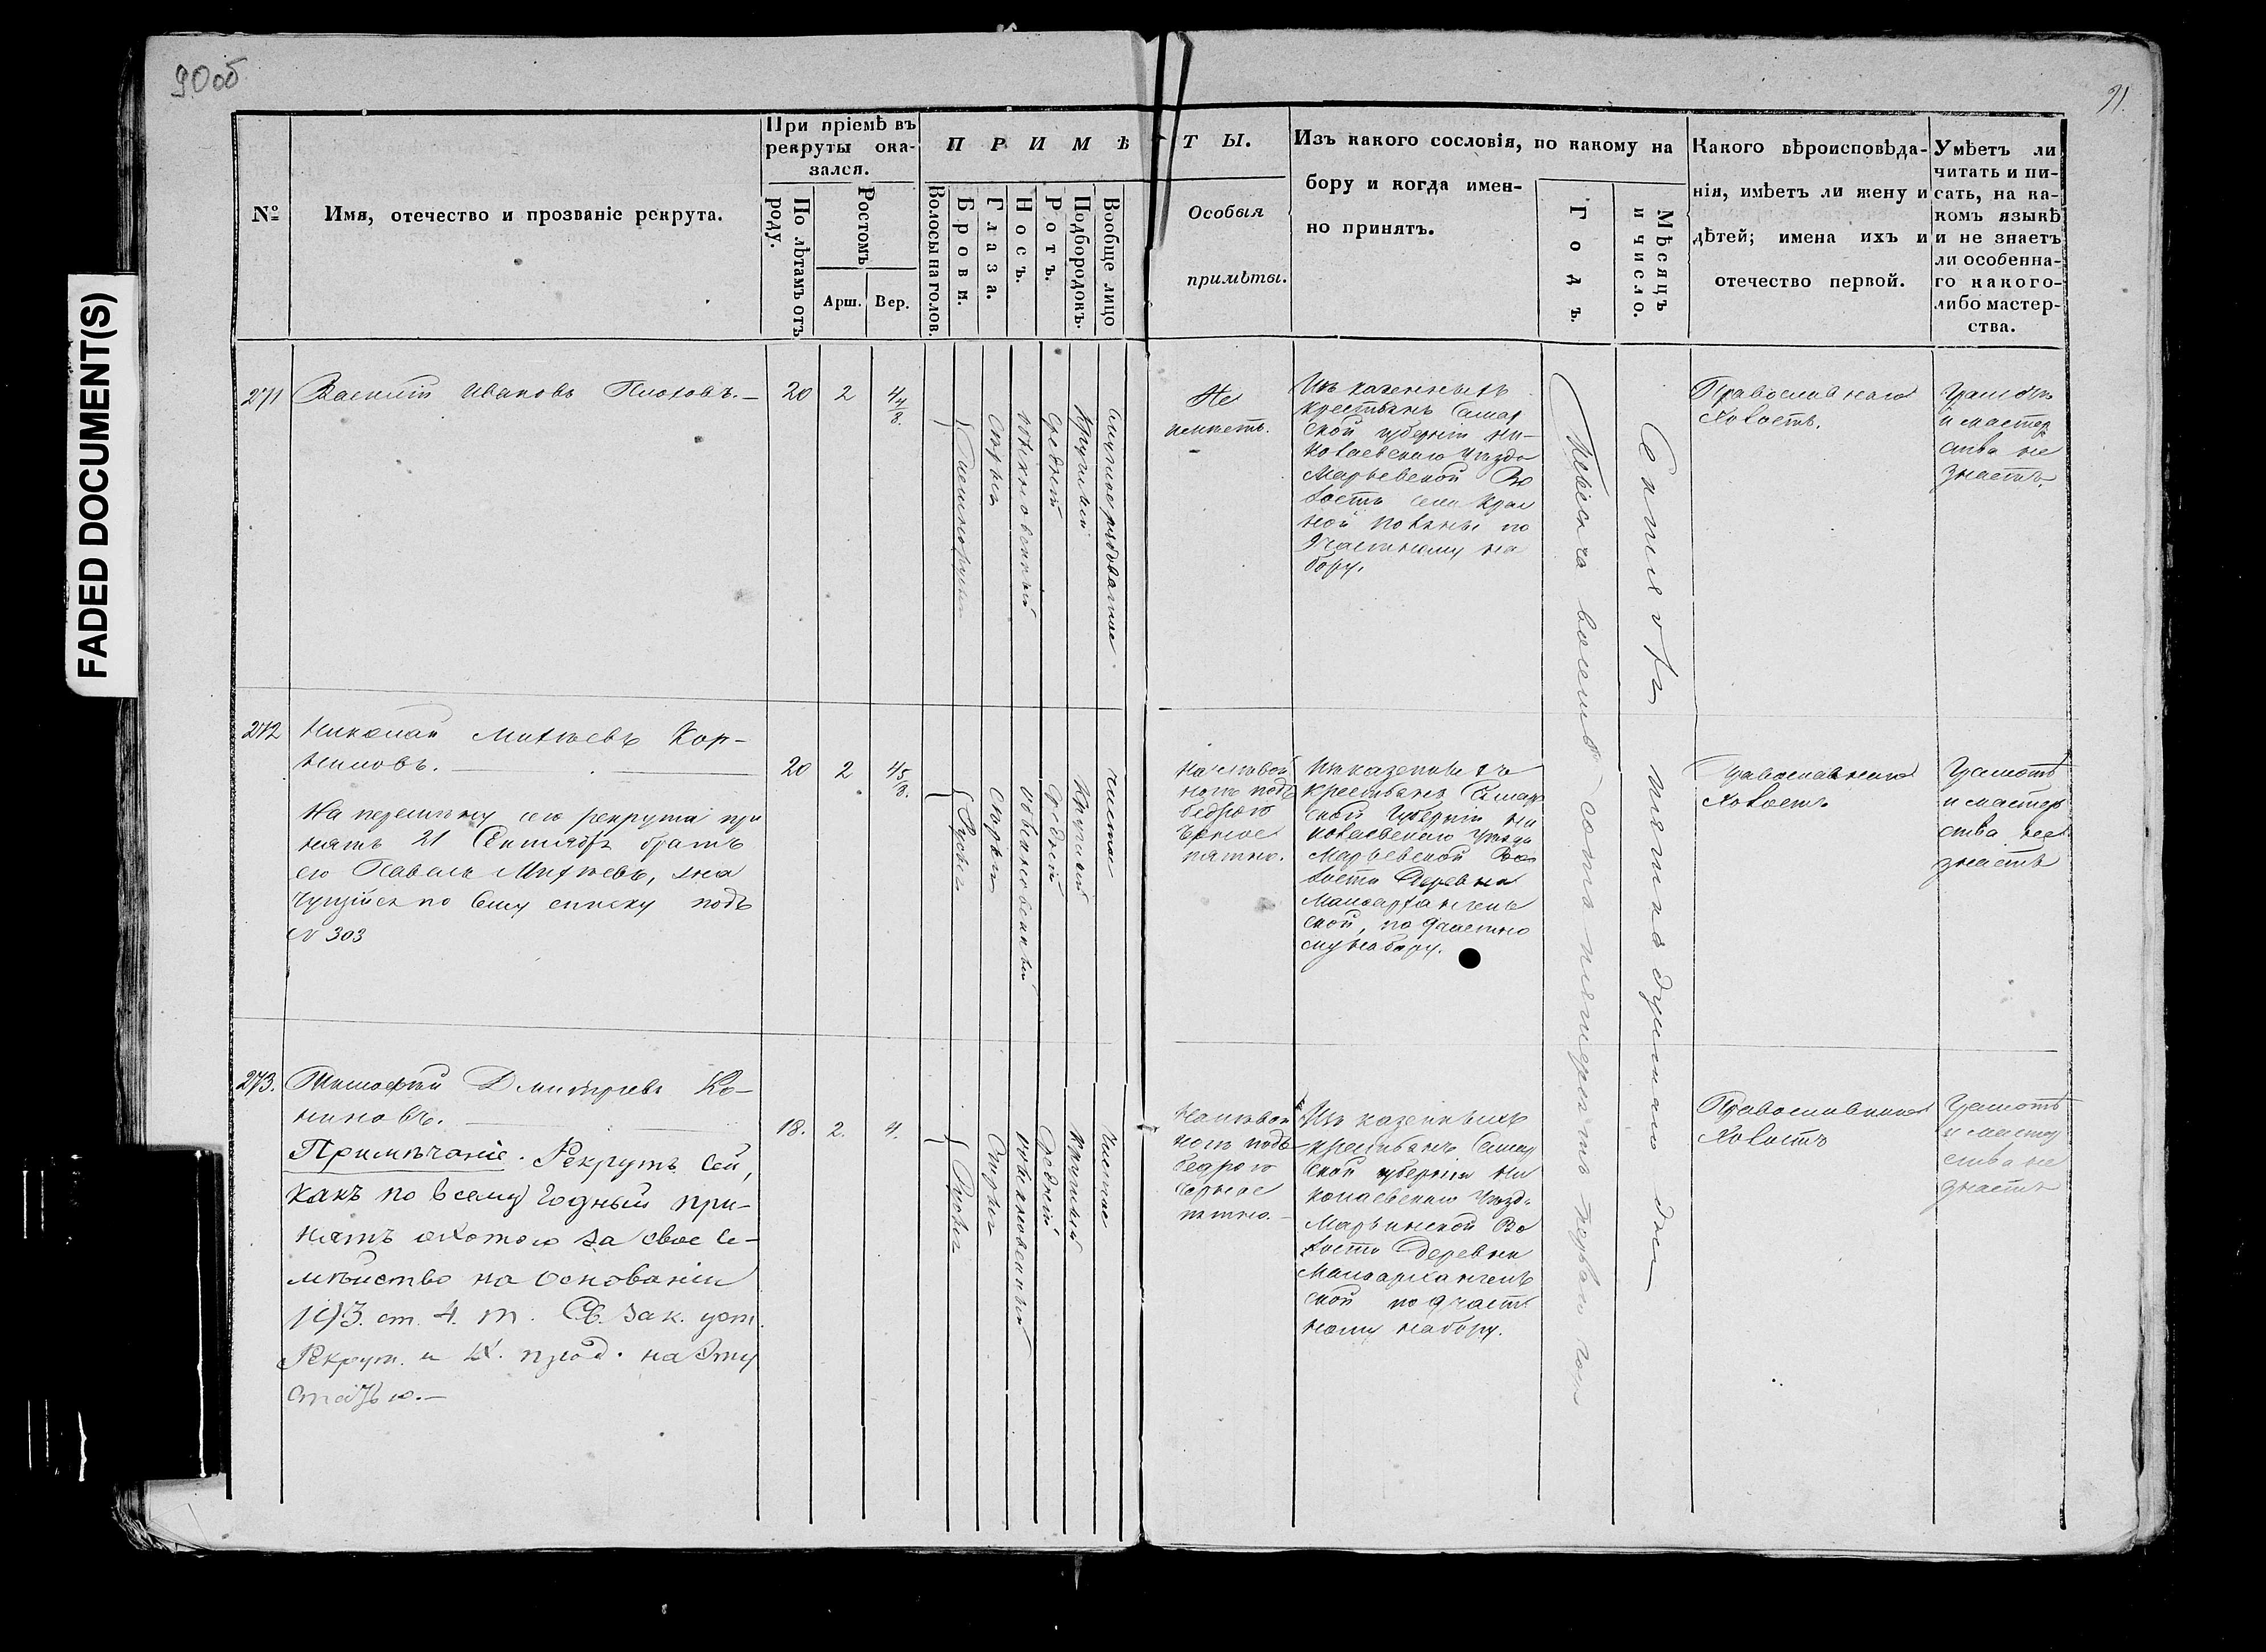 90 об
91.
FADED DOCUMENT(S)
№
Имя, отечество и прозваніе рекрута.
При пріемѣ въ
рекруты ока-
зался.
По лѣтамъ отъ
роду.
Ростомъ
Арш.
Вер.
ПРИМѢ
ТЫ.
Волосы на голов.
Брови.
Глаза.
Носъ.
Ротъ.
Подбородокъ.
Вообще лицо
Особыя
примѣты.
Изъ какого сословія, по какому на
бору и когда имен-
но принятъ.
Годъ.
Мѣсяцъ
и число.
Какого вѣроисповѣда-
нія, имѣетъ ли жену и
дѣтей; имена ихъ и
отечество первой.
Умѣетъ ли
читать и пи-
сать, на ка-
комъ языкѣ
и не знаетъ
ли особенна-
го какого-
либо мастер-
ства.
271
Василій Ивановъ
20
2
4 4/8.
Темнорусые
Сѣрые
обыкновенный
средній
Круглый
Не
имѣетъ.
Изъ казенныхъ
крестьянъ Самар
ской губерніи Ни-
колаевскаго уѣзда
Марьевской Во
лости села Крас
ной поляны по
9 частному на
бору.
Тысяча восемь-сотъ пятьдесятъ перваго года
Сентября пятнадцатаго дня
Православнаго
Холостъ.
Грамотѣ
и мастер
ства не
знаетъ.
272
Николай Михѣевъ Кор-
ниловъ.
На перемѣну сего рекрута при
нятъ 21 Сентября братъ
его Павелъ Михѣевъ, зна
чущійся по сему списку подъ
№ 303
20
2
4 5/8.
Русые
Сѣрые
обыкновенный
Средній
Круглый
чистое
На лѣвой
ногѣ подъ
бедрою
черное
пятно.
Изъ казенныхъ
крестьянъ Самар
ской Губерніи Ни
колаевскаго уѣзда
Марьевской Во
лости Деревни
Малоархангель
ской, по 9 частно
му набору.
Православнаго
Холостъ
Грамотѣ
и мастер
ства не
знаетъ
273.
Тимофей Дмитріевъ Ко-
ниновъ.
Примѣчаніе. Рекрутъ сей,
какъ по всему годный при-
нятъ охотою за свое се-
мѣйство на основаніи
193. ст. 4. т. Св. Зак. уст.
Рекрут. и IX. прод. на эту
статью.—
18.
2.
4.
Русые
Сѣрые
обыкновенный
Средній
Круглый
Чистое
На лѣвой
ногѣ подъ
бедрою
черное
пятно.
Изъ казенныхъ
крестьянъ Самар
ской губерніи Ни
колаевскаго уѣзда
Марьинской Во
лости Деревни
Малоархангель
ской по 9 част
ному набору.
Православнаго
Холостъ
Грамотѣ
и мастер
ства не
знаетъ